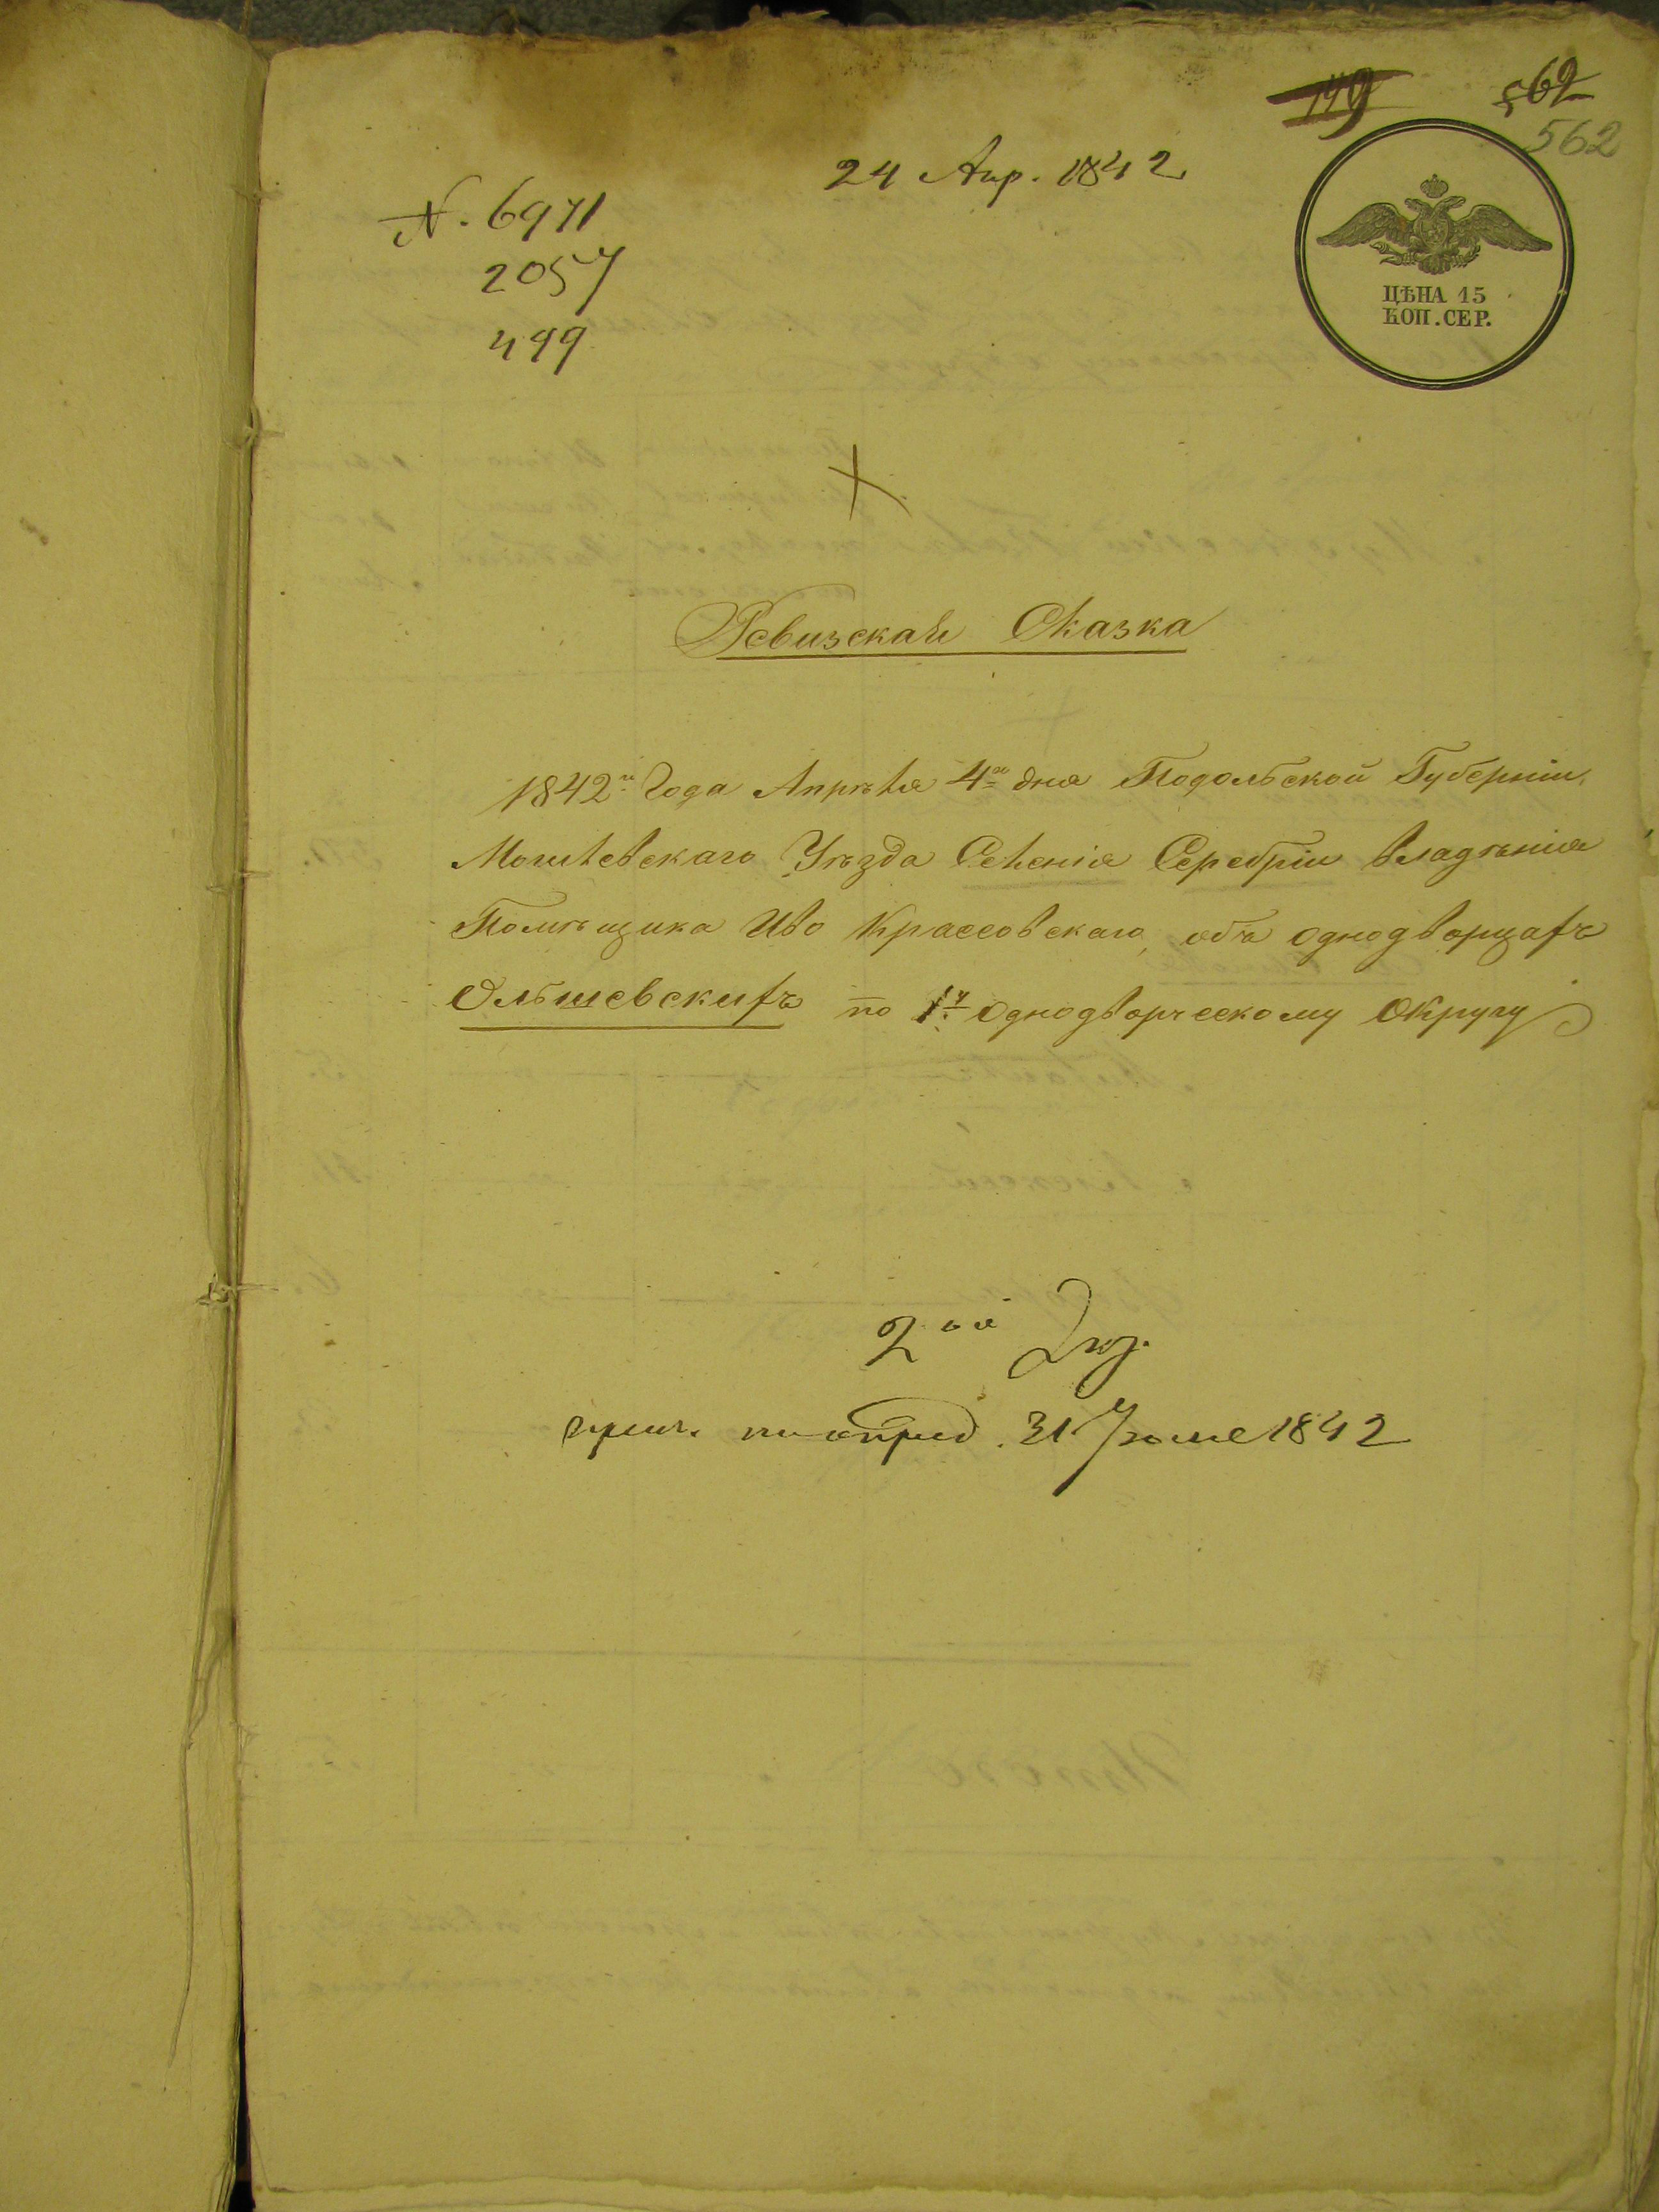 149 562
562
24 Апр. 1842
N. 6971
2057
499
ЦѢНА 15
КОП. СЕР.
Ревизская Сказка
1842го Года Апрѣля 4го дня Подольской Губерніи
Могилевскаго Уѣзда Селенія Серебріи владѣнія
Помѣщика Иво Крассовскаго, объ однодворцахъ
Ольшевскихъ по 1му Однодворческому Округу
2ой Экз.
по опред. 31 1842